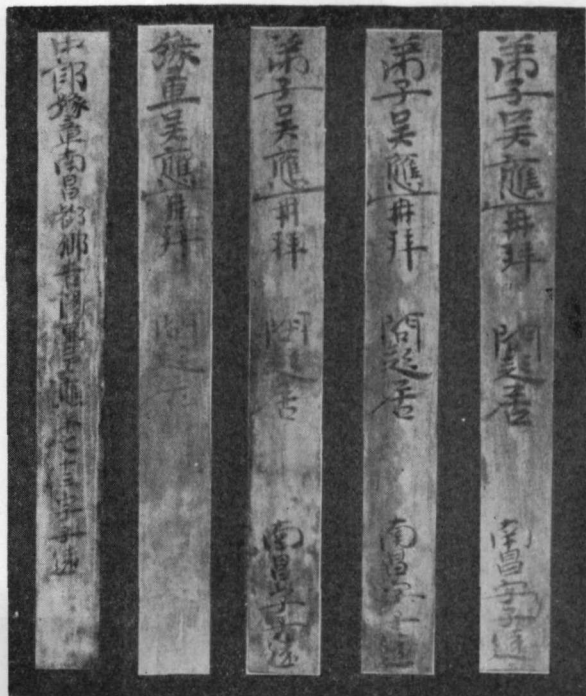 弟子吳應再拜　問起居　南昌字子遠
弟子吳應再拜　問起居　南昌字子遠
弟子吳應再拜　問起居　南昌字子遠
豫章吳應再拜　問起居
中郎豫章南昌都鄉吉陽里吳應年七十三字子遠